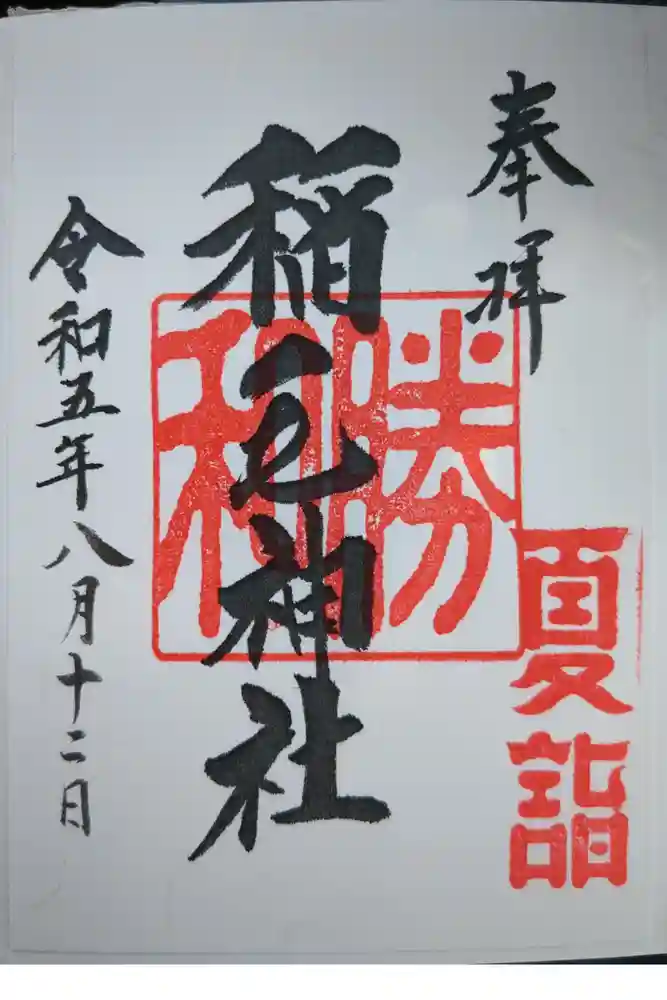 奉拝
夏詣
勝和
稲毛神社
令和五年八月十二日